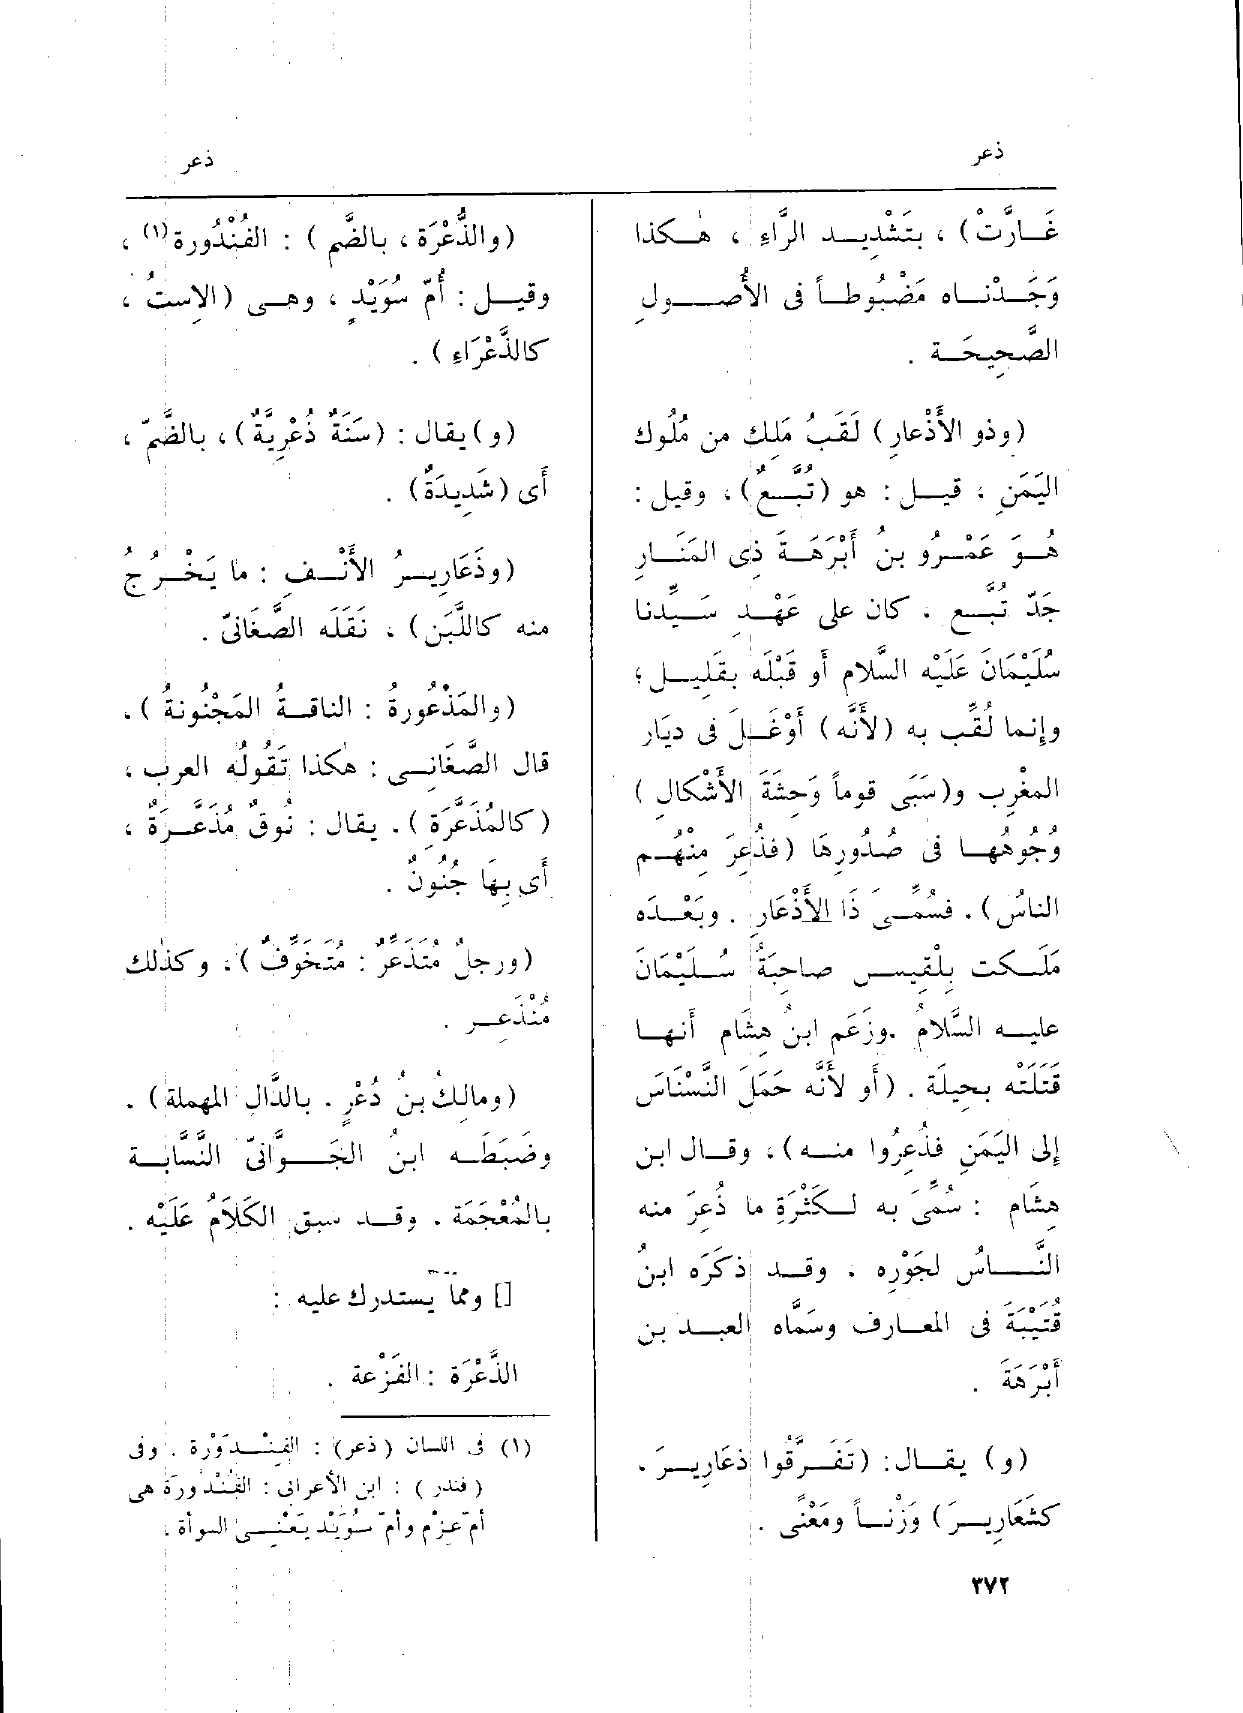 ذعر
ذعر
غَارَتْ) ، بتَشْدِيد الرَّاءِ ، هٰكذا
وَجَدْناه مَضْبُوطاً فى الأُصولِ
الصَّحِيحَة .
(وذو الأَذْعارِ) لَقَبُ مَلِك من مُلُوك
اليَمَنِ ، قيل : هو (تُبَّعٌ) ، وقيل :
هُوَ عَمْرو بنُ أَبْرَهَةَ ذِى المَنَارِ
جَدّ تُبَّع ، كان على عَهْد سَيِّدنا
سُلَيْمَانَ عَلَيْه السَّلام أو قَبْلَه بقَلِيل ؛
وإنما لُقِّب به (لأَنَّه) أَوْغَلَ فى دِيَار
المغْرِب و(سَبَى قوماً وَحِشَةَ الأَشْكالِ)
وُجُوهُها فى صُدُورِهَا (فذُعِرَ مِنْهُم
الناسُ) . فسُمِّىَ ذَا الأَذْعَارِ . وبَعْدَه
مَلَكت بِلْقِيس صاحِبَةُ سُلَيْمَانَ
عليه السَّلامُ . وزَعَم ابنُ هِشَام أنها
قَتَلَتْه بحِيلَة . (أو لأَنَّه حَمَلَ النَّسْنَاسَ
إلى اليَمَنِ فذُعِرُوا منه) ، وقال ابن
هِشَام : سُمِّىَ به لكَثْرَةِ ما ذُعِرَ منه
النَّاسُ لجَوْرِه . وقد ذكَرَه ابنُ
قُتَيْبَة فى المعارف وسَمَّاه العبد بن
أَبْرَهَةَ .
(و) يقال: (تَفَرَّقُوا ذَعَارِيرَ ،
كشَعَارِيرَ) وَزْناً ومَعْنًى .
(والذُّعْرَة ، بالضّم) : الفُنْدُورة(١) ،
وقيل : أُمّ سُوَيْدٍ ، وهى (الاِستُ ،
كالذَّعْرَاءِ) .
(و) يقال : (سَنَةٌ ذُعْرِيَّةٌ) ، بالضَّمّ ،
أى (شَدِيدَةٌ) .
(وذَعَارِيرُ الأَنْفِ : ما يَخْرُجُ
منه كاللَّبَنِ) ، نَقَلَه الصَّغانىّ .
(والمَذْعُورةُ : الناقةُ المَجْنُونةُ) .
قال الصَّغانِى : هٰكذا تَقُولُه العرب ،
(كالمُذَعَّرَة) . يقال : نُوقٌ مُذَعَّرَةٌ ،
أى بِهَا جُنُونٌ .
(ورجلٌ مُتَذَعِّرٌ : مُتَخَوِّفٌ) ، وكذٰلك
مُنْذَعِر .
(ومالكُ بنُ دُعْرٍ ، بالدَّال المهملة) .
وضَبَطَه ابنُ الجَوَّانىّ النَّسَّابَة
بالمُعْجَمَة . وقد سبق الكَلاَمُ عَلَيْه .
[] ومما يستدرك عليه :
الذَّعْرَة : الفَزْعة .
(١) فى اللسان (ذعر) : الفِنْدَوْرة . وفى
(فندر) : ابن الأعرابى : الفُنْدُورَة هى
أم عِزْم وأم سُوَيْد يَعْنِى السوأة .
٣٧٢